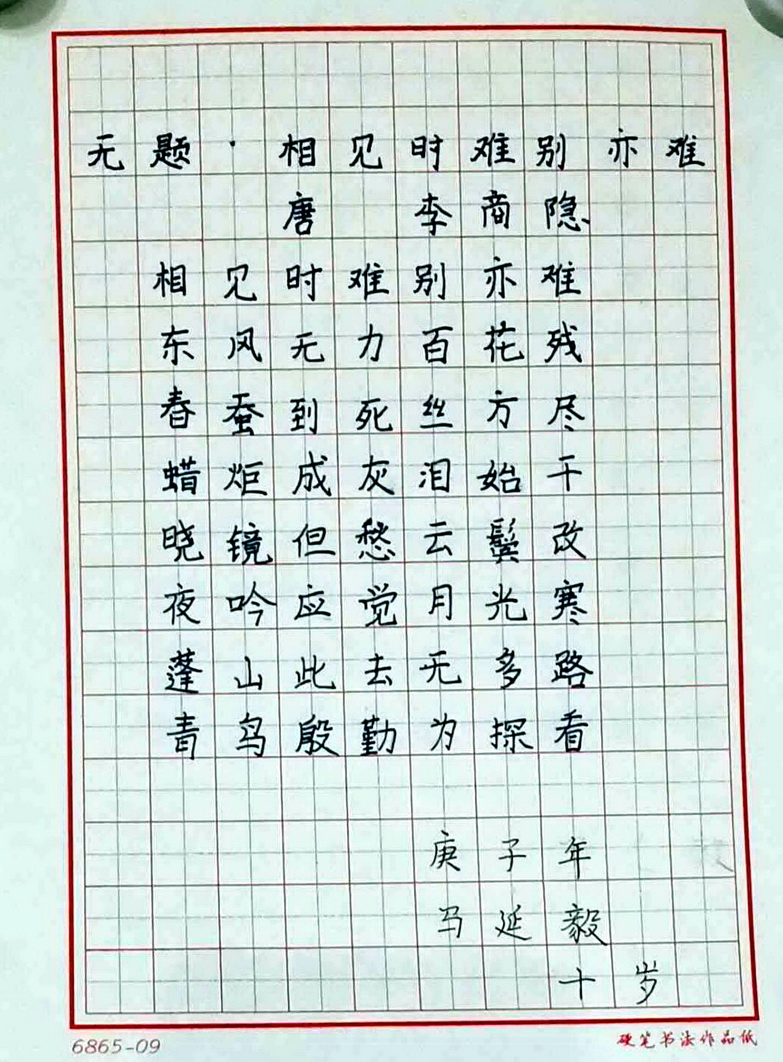 无题·相见时难别亦难
唐 李商隐
相见时难别亦难
东风无力百花残
春蚕到死丝方尽
蜡炬成灰泪始干
晓镜但愁云鬓改
夜吟应觉月光寒
蓬山此去无多路
青鸟殷勤为探看
庚子年
马延毅
十岁
6865-09
硬笔书法作品纸